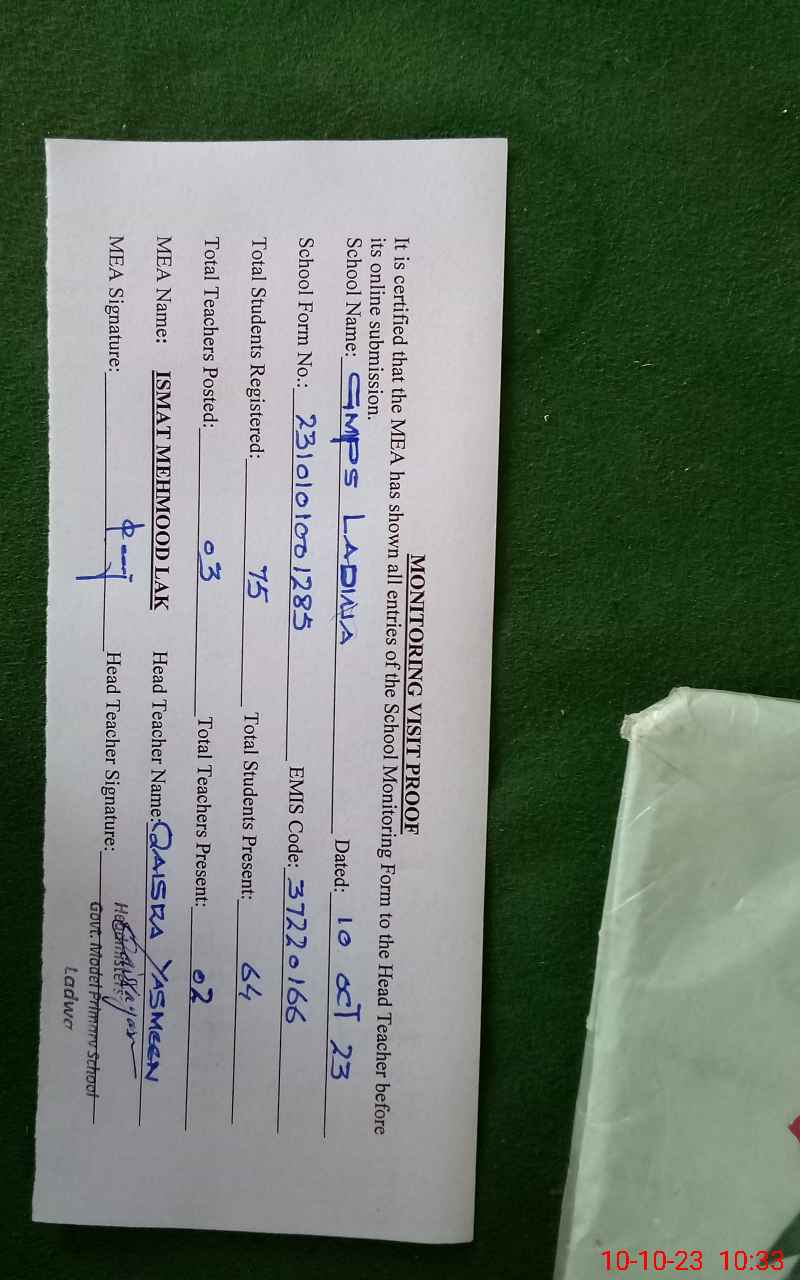 MONITORING VISIT PROOF
It is certified that the MEA has shown all entries of the School Monitoring Form to the Head Teacher before
its online submission.
School Name: GMPS LADWA Dated: 10 OCT 23
School Form No.: 2310101001285 EMIS Code: 37220166
Total Students Registered: 75 Total Students Present: 64
Total Teachers Posted: 03 Total Teachers Present: 02
MEA Name: ISMAT MEHMOOD LAK Head Teacher Name: QAISRA YASMEEN
MEA Signature: Head Teacher Signature:
Headmistress
Govt. Model Primary School
Ladwa
10-10-23 10:33